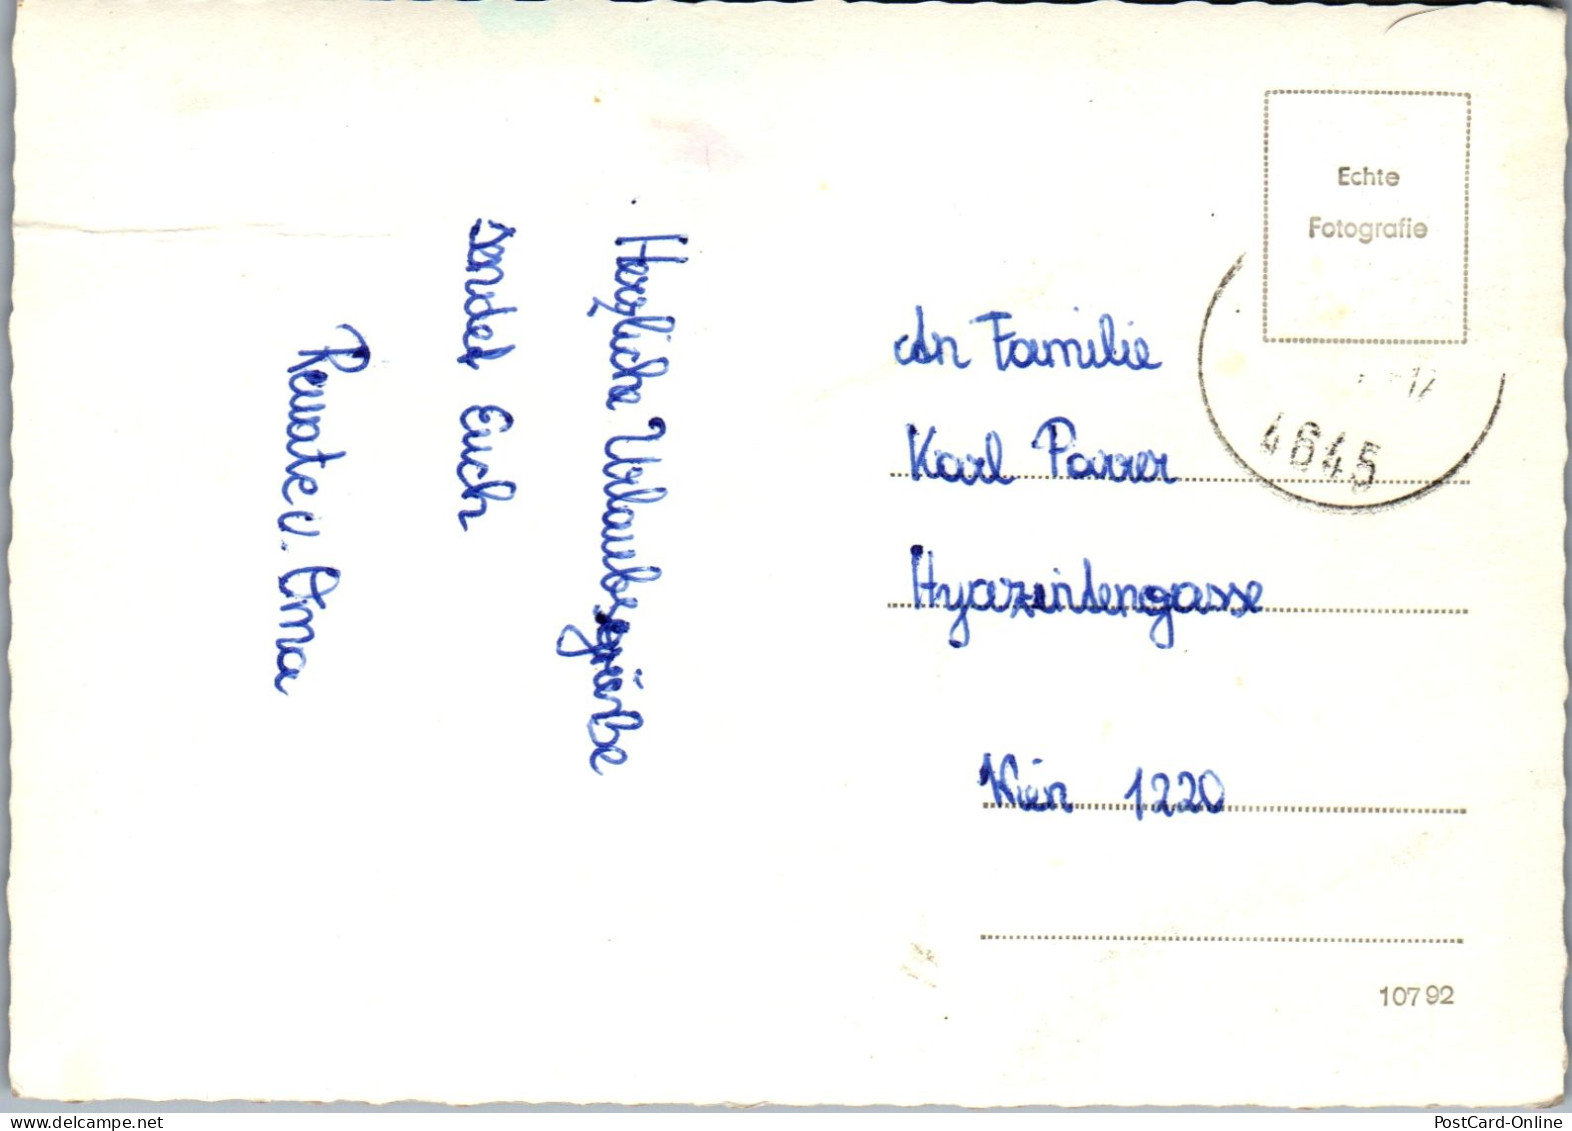 Herzliche Urlaubsgrüße
sendet Euch
Renate u. Oma
Echte
Fotografie
4645
An Familie
Karl Parrer
Hyazintengasse
Wien 1220
10792
PostCard-Online